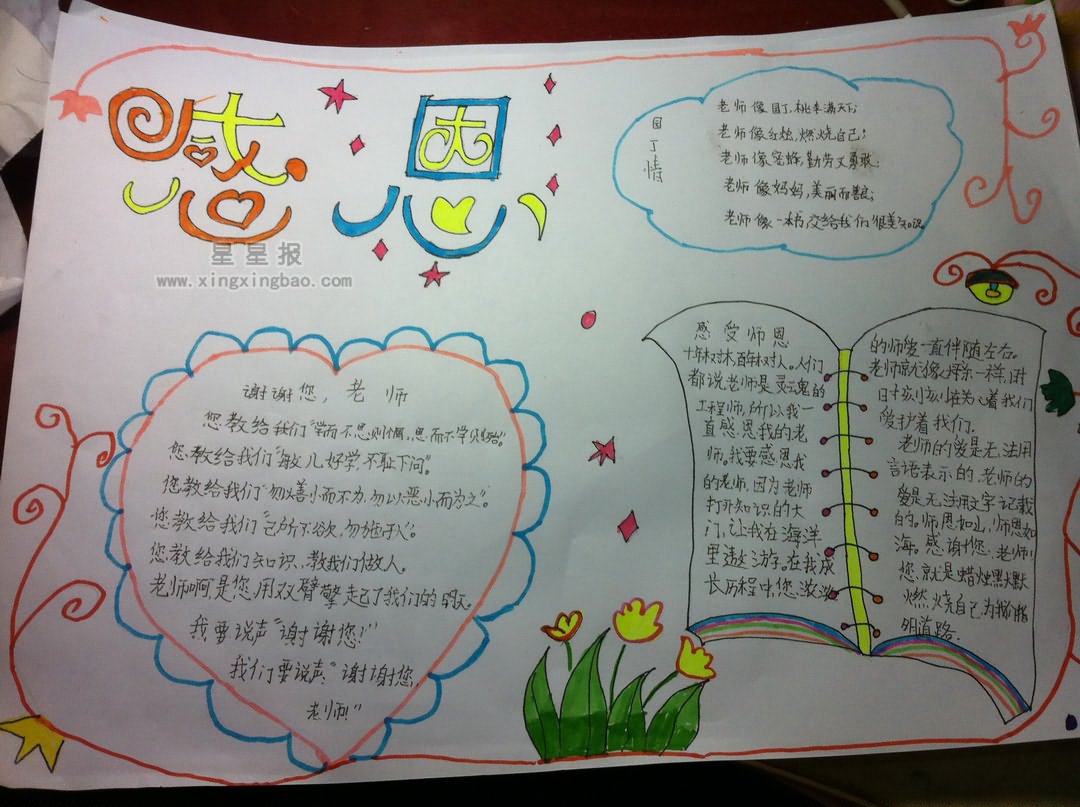 感恩
星星报
www.xingxingbao.com
园丁情
老师像园丁,桃李满天下;
老师像红烛,燃烧自己;
老师像蜜蜂,勤劳又勇敢;
老师像妈妈,美丽而善良;
老师像一本书,交给我们很美知识。
谢谢您,老师
您教给我们"学而不思则惘,思而不学则殆"。
您教给我们"敏儿好学,不耻下问"。
您教给我们"勿以善小而不为,勿以恶小而为之"。
您教给我们"己所不欲,勿施于人"。
您教给我们知识,教我们做人。
老师啊是您用双臂擎起了我们的明天。
我要说声"谢谢您!"
我们要说声:"谢谢您,
老师!"
感受师恩
十年树木,百年树人。人们
都说老师是灵魂的
工程师,所以我一
直感恩我的老
师。我要感恩我
的老师,因为老师
打开知识的大
门,让我在海洋
里遨游。在我成
长历程中,您浓浓
的师爱一直伴随左右。
老师就像烁一样,时
日孩小为着我们
爱护着我们.
老师的爱是无法用
言语表示的,老师的
爱是无法用文字记载
的。师恩如山,师恩如
海。感谢您,老师!
您就是蜡烛默默
燃烧自己,为我们指
明道路.